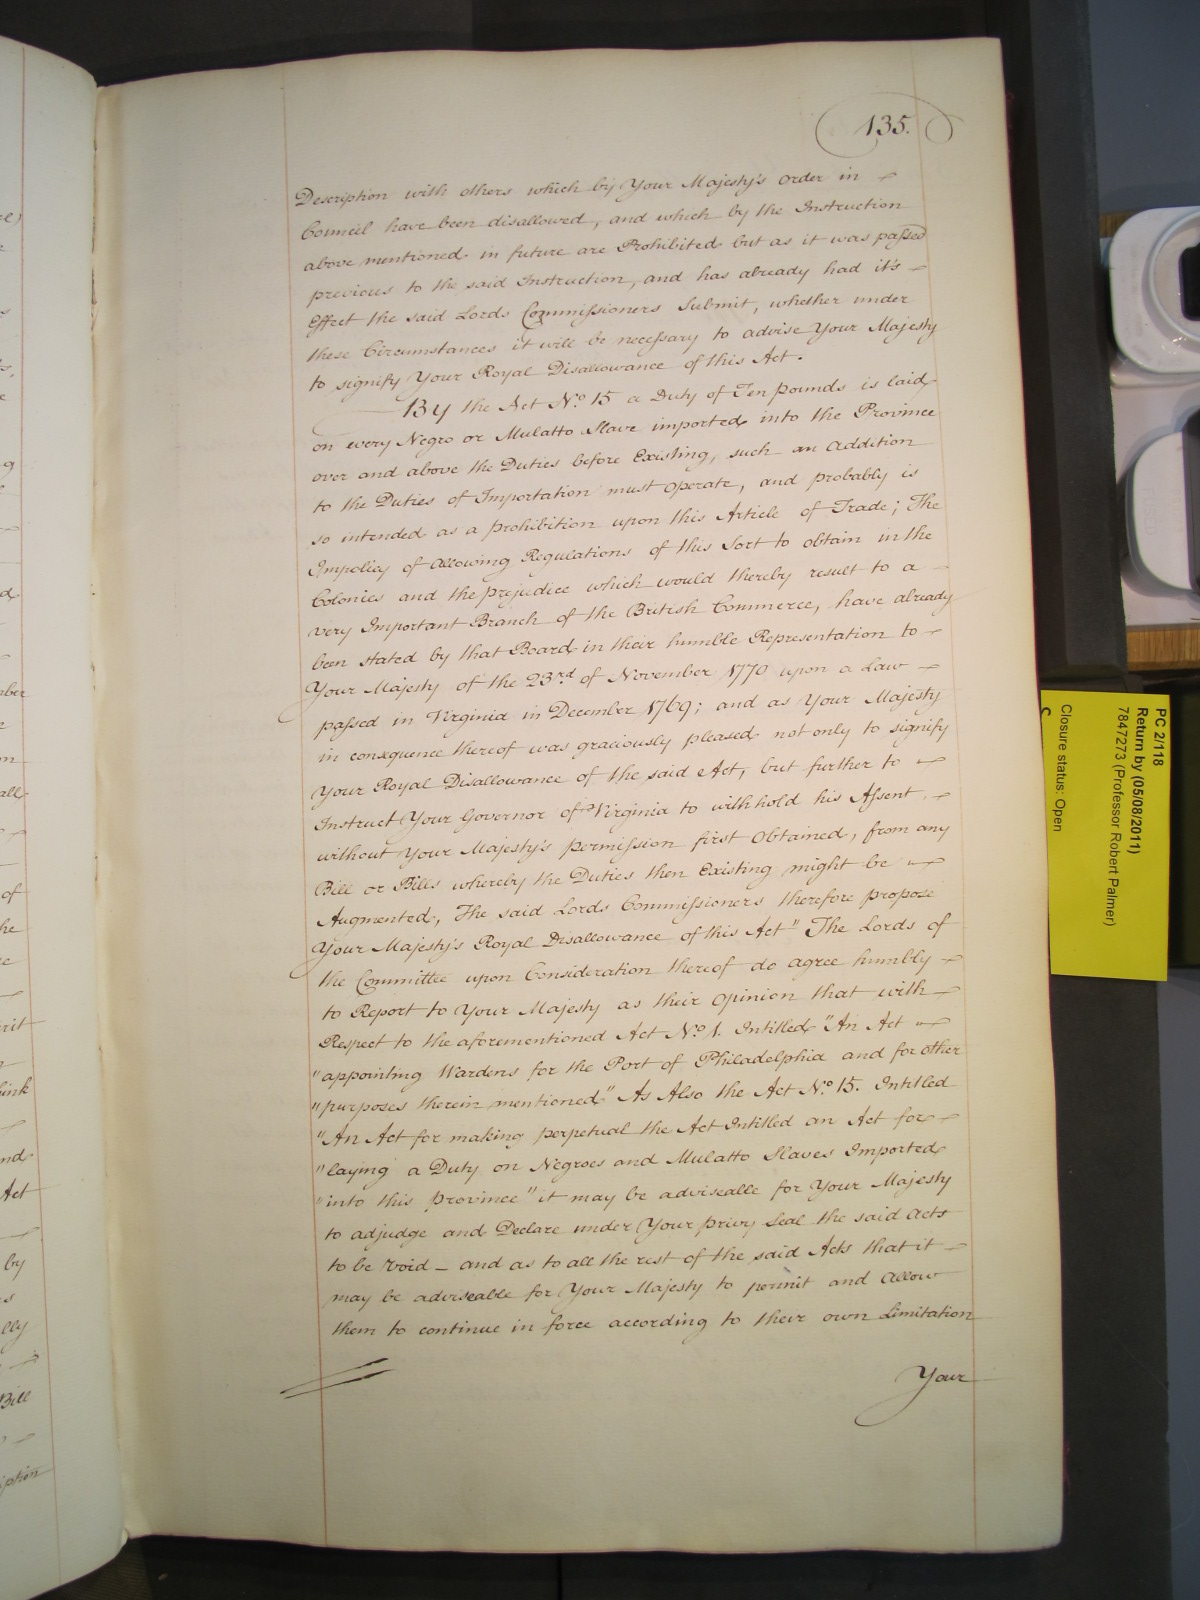 135.
Description with others which by Your Majesty's Order in
Council have been disallowed, and which by the Instruction
above mentioned in future are Prohibited but as it was passed
previous to the said Instruction, and has already had it's
Effect the said Lords Commissioners Submit, whether under
these Circumstances it will be necessary to advise Your Majesty
to signify Your Royal Disallowance of this Act.
By the Act No. 15 a Duty of Ten pounds is laid
on every Negro or Mulatto Slave imported into the Province
over and above the Duties before Existing, such an Addition
to the Duties of Importation must Operate, and probably is
so intended as a prohibition upon this Article of Trade; The
Impolicy of Allowing Regulations of this Sort to obtain in the
Colonies and the prejudice which would thereby result to a
very Important Branch of the British Commerce, have already
been stated by that Board in their humble Representation to
Your Majesty of the 23rd of November 1770 upon a Law
passed in Virginia in December 1769; and as Your Majesty
in consequence thereof was graciously pleased not only to signify
Your Royal Disallowance of the said Act, but further to
Instruct Your Governor of Virginia to withhold his Assent
without Your Majesty's permission first Obtained, from any
Bill or Bills whereby the Duties then Existing might be
Augmented, The said Lords Commissioners therefore propose
Your Majesty's Royal Disallowance of this Act" The Lords of
the Committee upon Consideration thereof do agree humbly
to Report to Your Majesty as their Opinion that with
Respect to the aforementioned Act No. 1. Intitled "An Act
"appointing Wardens for the Port of Philadelphia and for other
"purposes therein mentioned" As Also the Act No. 15. Intitled
"An Act for making perpetual the Act Intitled an Act for
"laying a Duty on Negroes and Mulatto Slaves Imported
"into this Province" it may be adviseable for Your Majesty
to adjudge and Declare under Your privy Seal the said Acts
to be void – and as to all the rest of the said Acts that it
may be adviseable for Your Majesty to permit and Allow
them to continue in force according to their own Limitation
Your
PC 2/118
Return by (05/08/2011)
7847273 (Professor Robert Palmer)
Closure status: Open